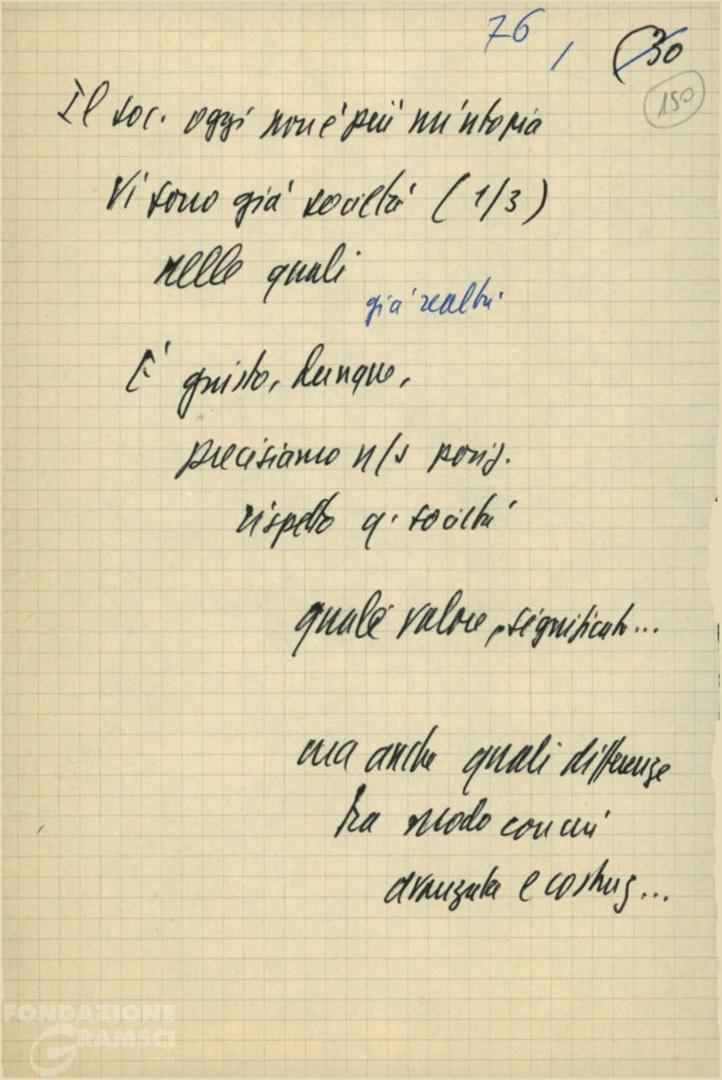 76 / (30
150
Il soc. oggi non è più un'utopia
Vi sono già società (1/3)
nelle quali
già realtà
È giusto, dunque,
precisiamo n/s posiz.
rispetto q. società
quale valore, significato...
ma anche quali differenze
tra modo con cui
avanzata e costruz...
FONDAZIONE
GRAMSCI